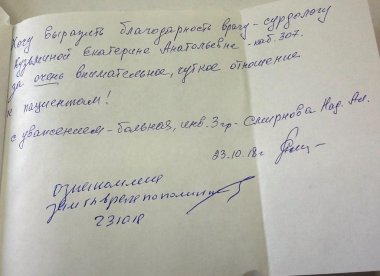 Хочу выразить благодарность врачу-сурдологу
Кузьминой Екатерине Анатольевне - каб. 307.
за очень внимательное, чуткое отношение
к пациентам!
с уважением - больная, инв. 3 гр - Смирнова Над. Ал.
23.10.18г
ознакомлена
231018